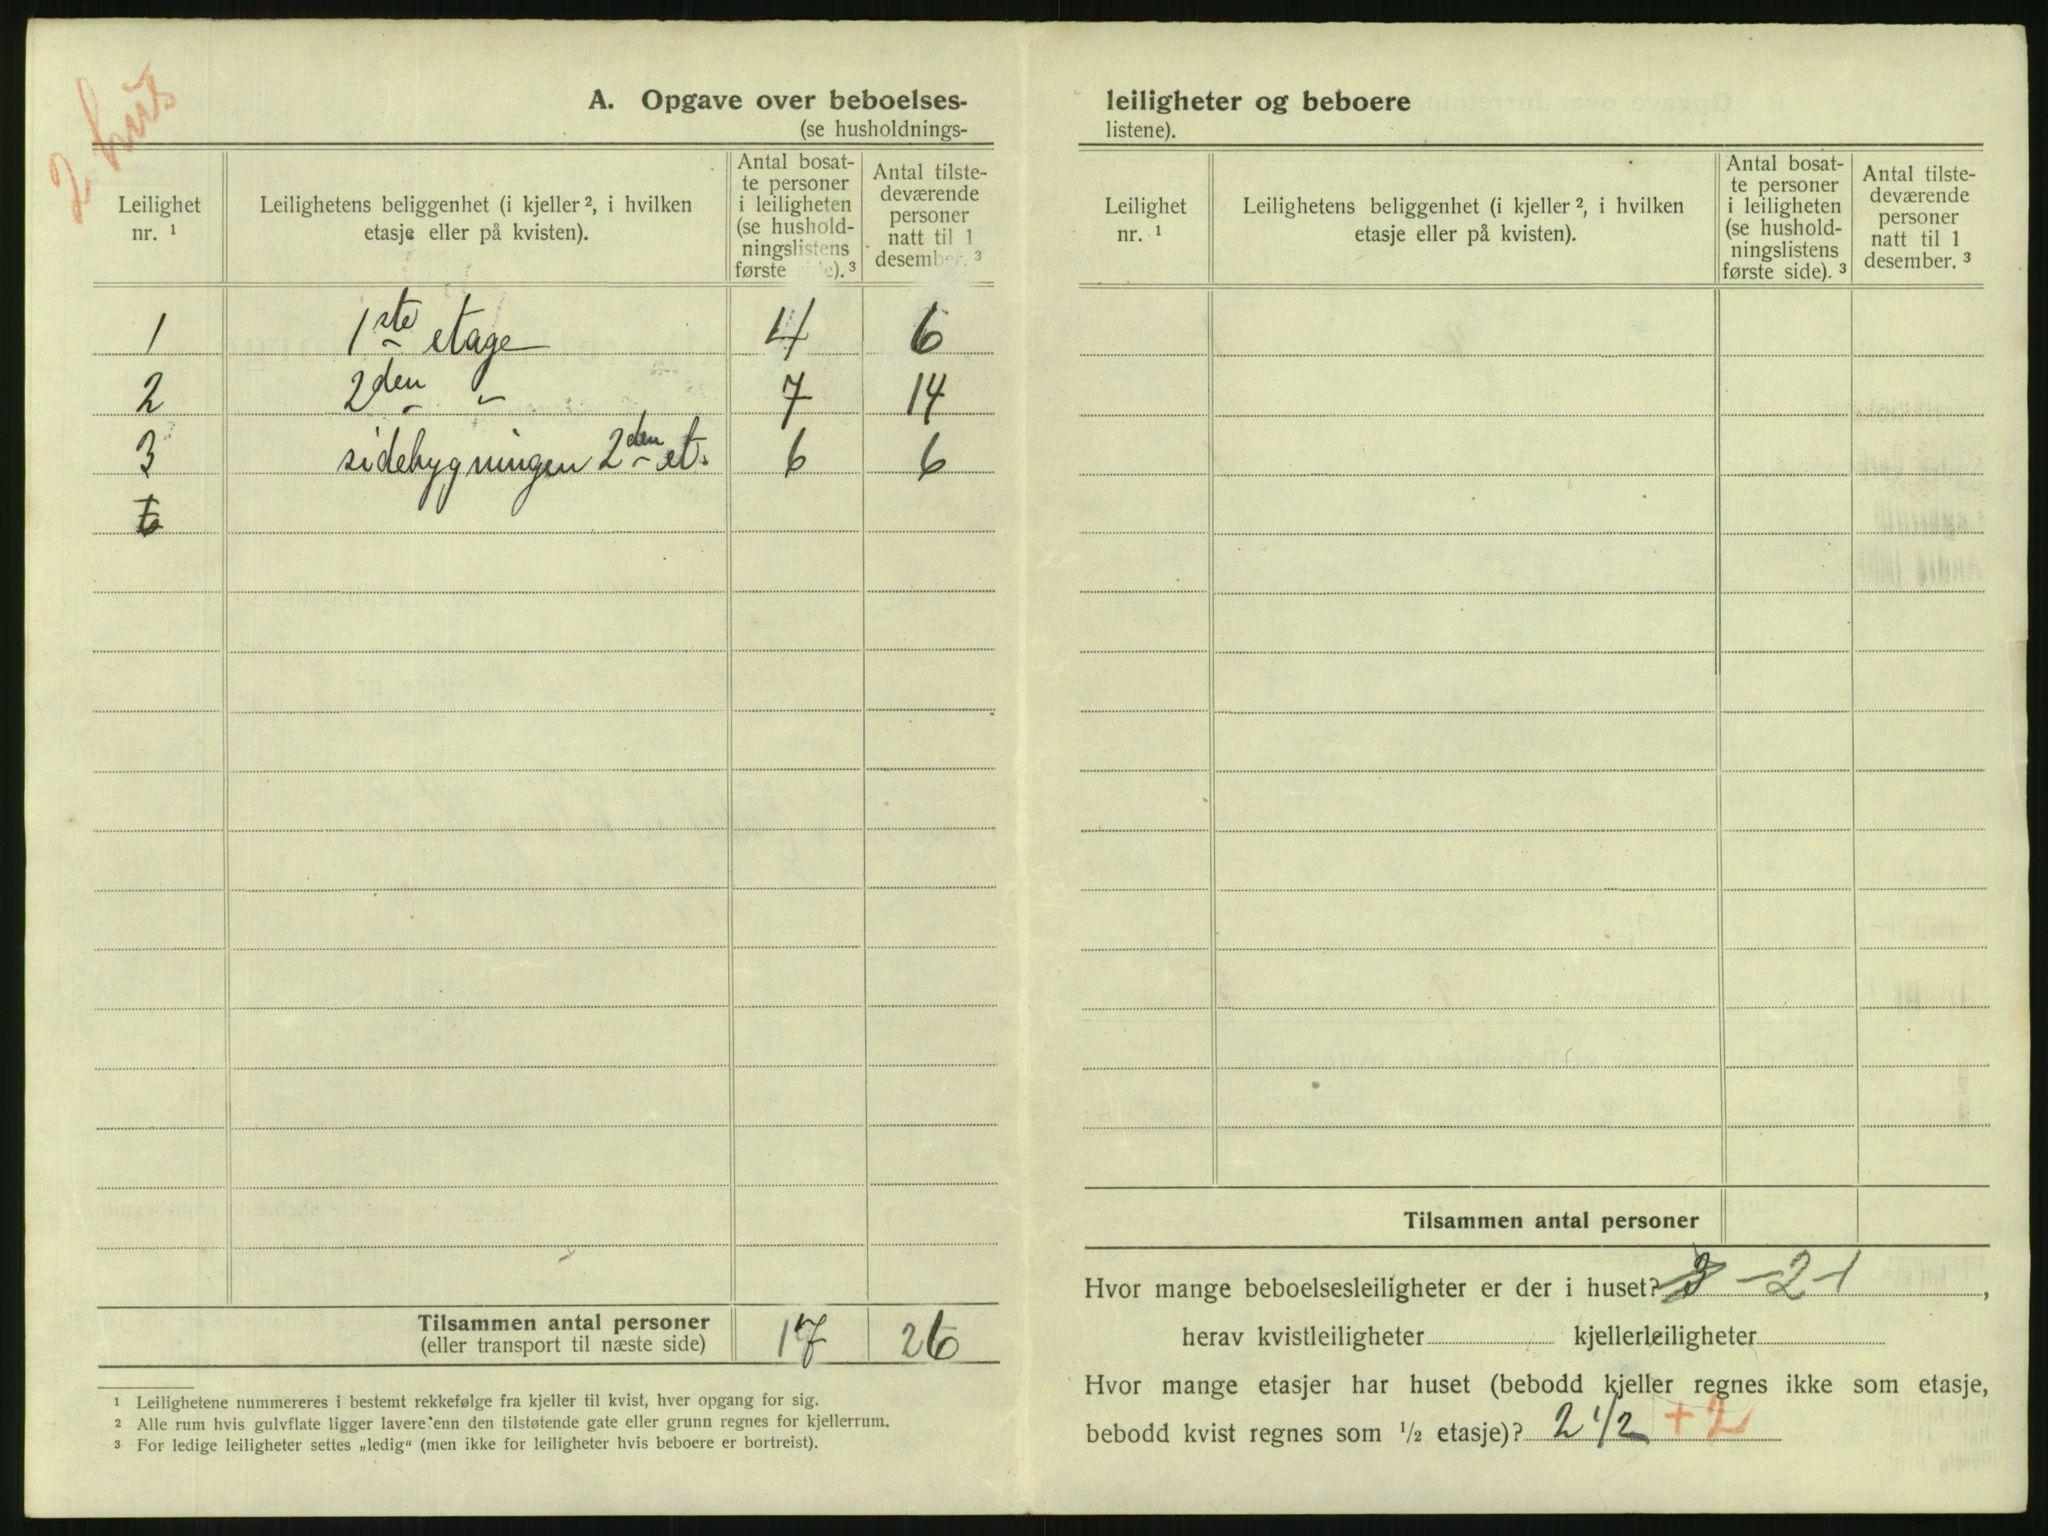 2 hus
A. Opgave over beboelses-
(se husholdnings-
Leilighet nr. ¹
Leilighetens beliggenhet (i kjeller ², i hvilken etasje eller på kvisten).
Antal bosat-
te personer
i leiligheten
(se hushold-
ningslistens
første side). ³
Antal tilste-
deværende
personer
natt til 1
desember. ³
1 1ste etage 4 6
2 2den " 7 14
3 sidebygningen 2den et. 6 6
Tilsammen antal personer 17 26
(eller transport til næste side)
¹ Leilighetene nummereres i bestemt rekkefølge fra kjeller til kvist, hver opgang for sig.
² Alle rum hvis gulvflate ligger lavere enn den tilstøtende gate eller grunn regnes for kjellerrum.
³ For ledige leiligheter settes „ledig“ (men ikke for leiligheter hvis beboere er bortreist).
leiligheter og beboere
listene).
Leilighet nr. ¹
Leilighetens beliggenhet (i kjeller ², i hvilken etasje eller på kvisten).
Antal bosat-
te personer
i leiligheten
(se hushold-
ningslistens
første side). ³
Antal tilste-
deværende
personer
natt til 1
desember. ³
Tilsammen antal personer
Hvor mange beboelsesleiligheter er der i huset? 3 - 2 - 1,
herav kvistleiligheter kjellerleiligheter
Hvor mange etasjer har huset (bebodd kjeller regnes ikke som etasje,
bebodd kvist regnes som ½ etasje)? 2 1/2 + 2